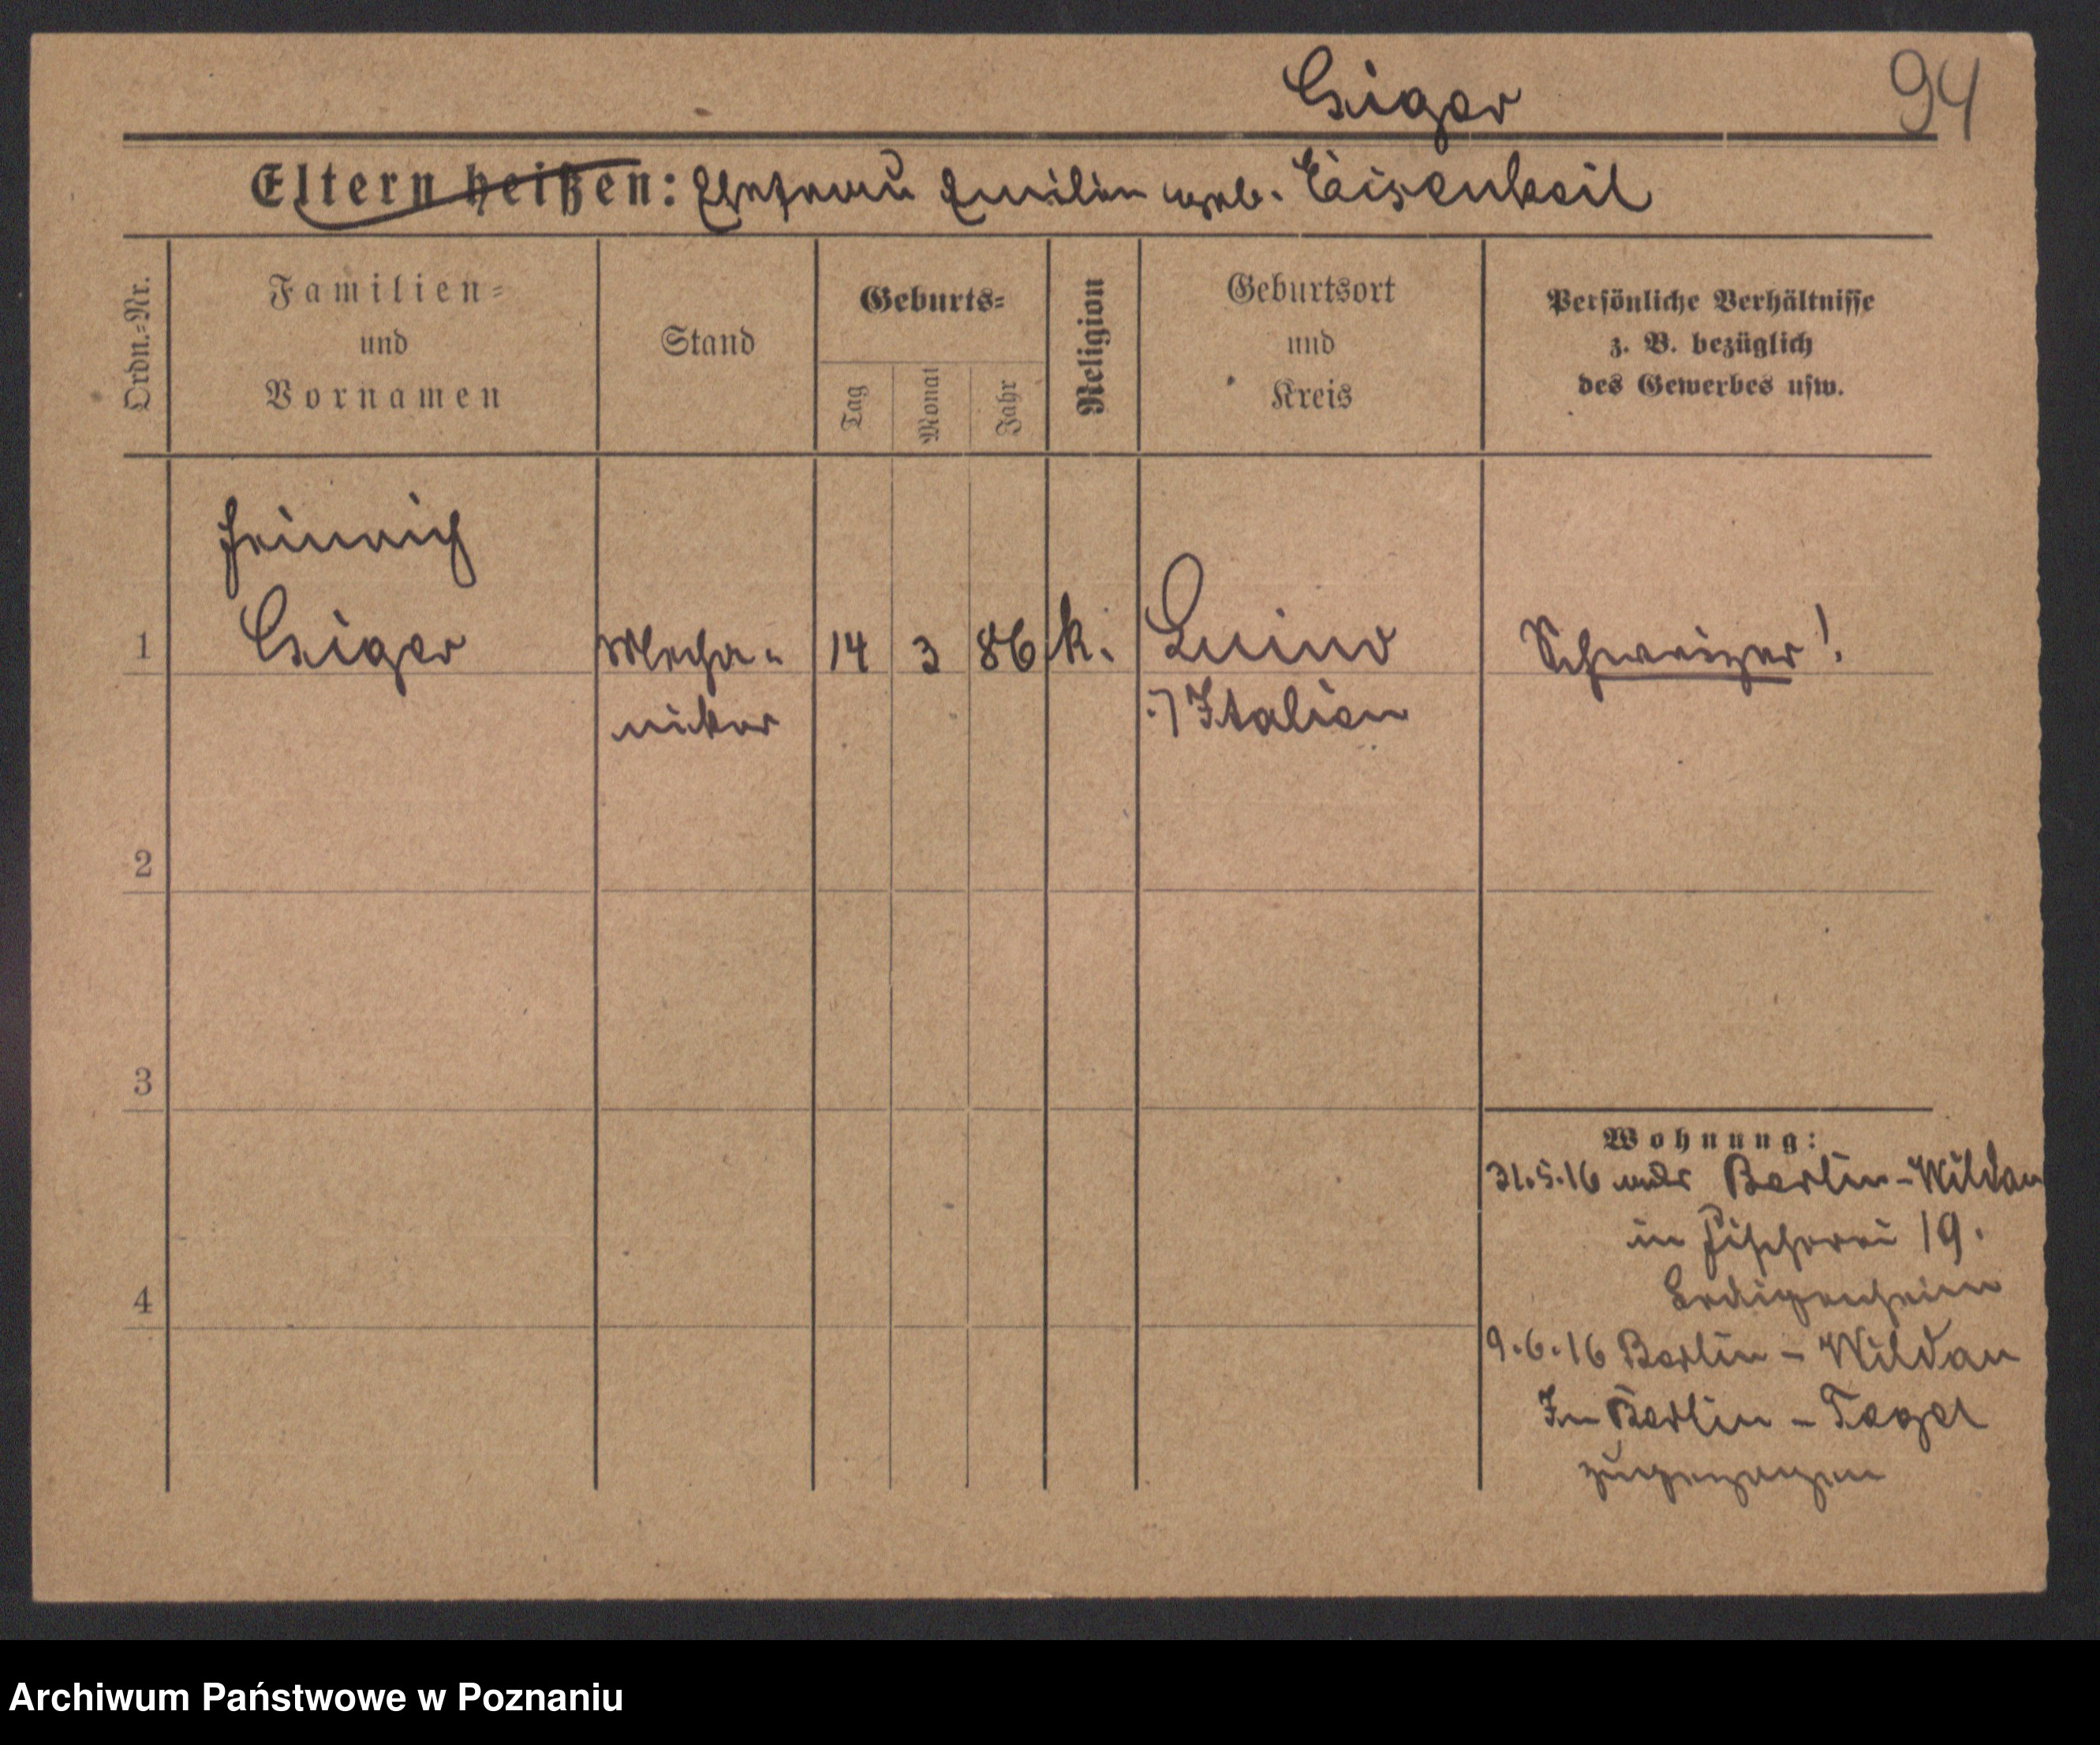 Geiger
94
Eltern heißen: Ehefrau Emilie geb. Eisenkeil
Ordn.-Nr.
Familien-
und
Vornamen
Stand
Geburts-
Tag
Monat
Jahr
Religion
Geburtsort
und
Kreis
Persönliche Verhältnisse
z. B. bezüglich
des Gewerbes usw.
Heinrich
1
Mecha-
niker
14
3
86
k.
Luino
Italien
Schweizer!
2
3
4
Wohnung:
31.5.16 Berlin-Wildau
in Fischerei 19.
Ledigenheim
9.6.16 Berlin - Wildau
In Berlin - Tegel
zugezogen
Archiwum Państwowe w Poznaniu